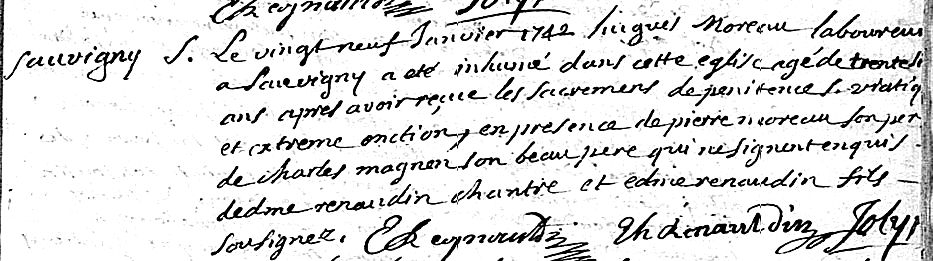 Sauvigny S. Le vingt neuf Janvier 1742 hugues Moreau laboureur
a Sauvigny a eté inhumé dans cette eglise agé de trente si
ans apres avoir reçue les sacremens de penitence S. viatiq
et extreme onction, en presence de pierre moreau son per
de charles magnen son beau pere qui ne signent enquis
dedme renaudin chantre et edme renaudin fils
sousignez. Joly